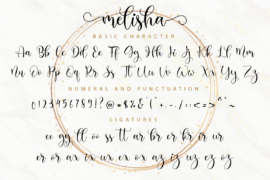 melisha
BASIC CHARACTER
Aa Bb Cc Dd Ee Ff Gg Hh Ii Jj Kk Ll Mm
Nn Oo Pp Qq Rr Ss Tt Uu Vv Ww Xx Yy Zz
NUMERAL AND PUNCTUATION
LIGATURES
ee gg ll oo ss tt ar br er kr ir ur
er or ax ix ux ex ox az iz uz ez oz